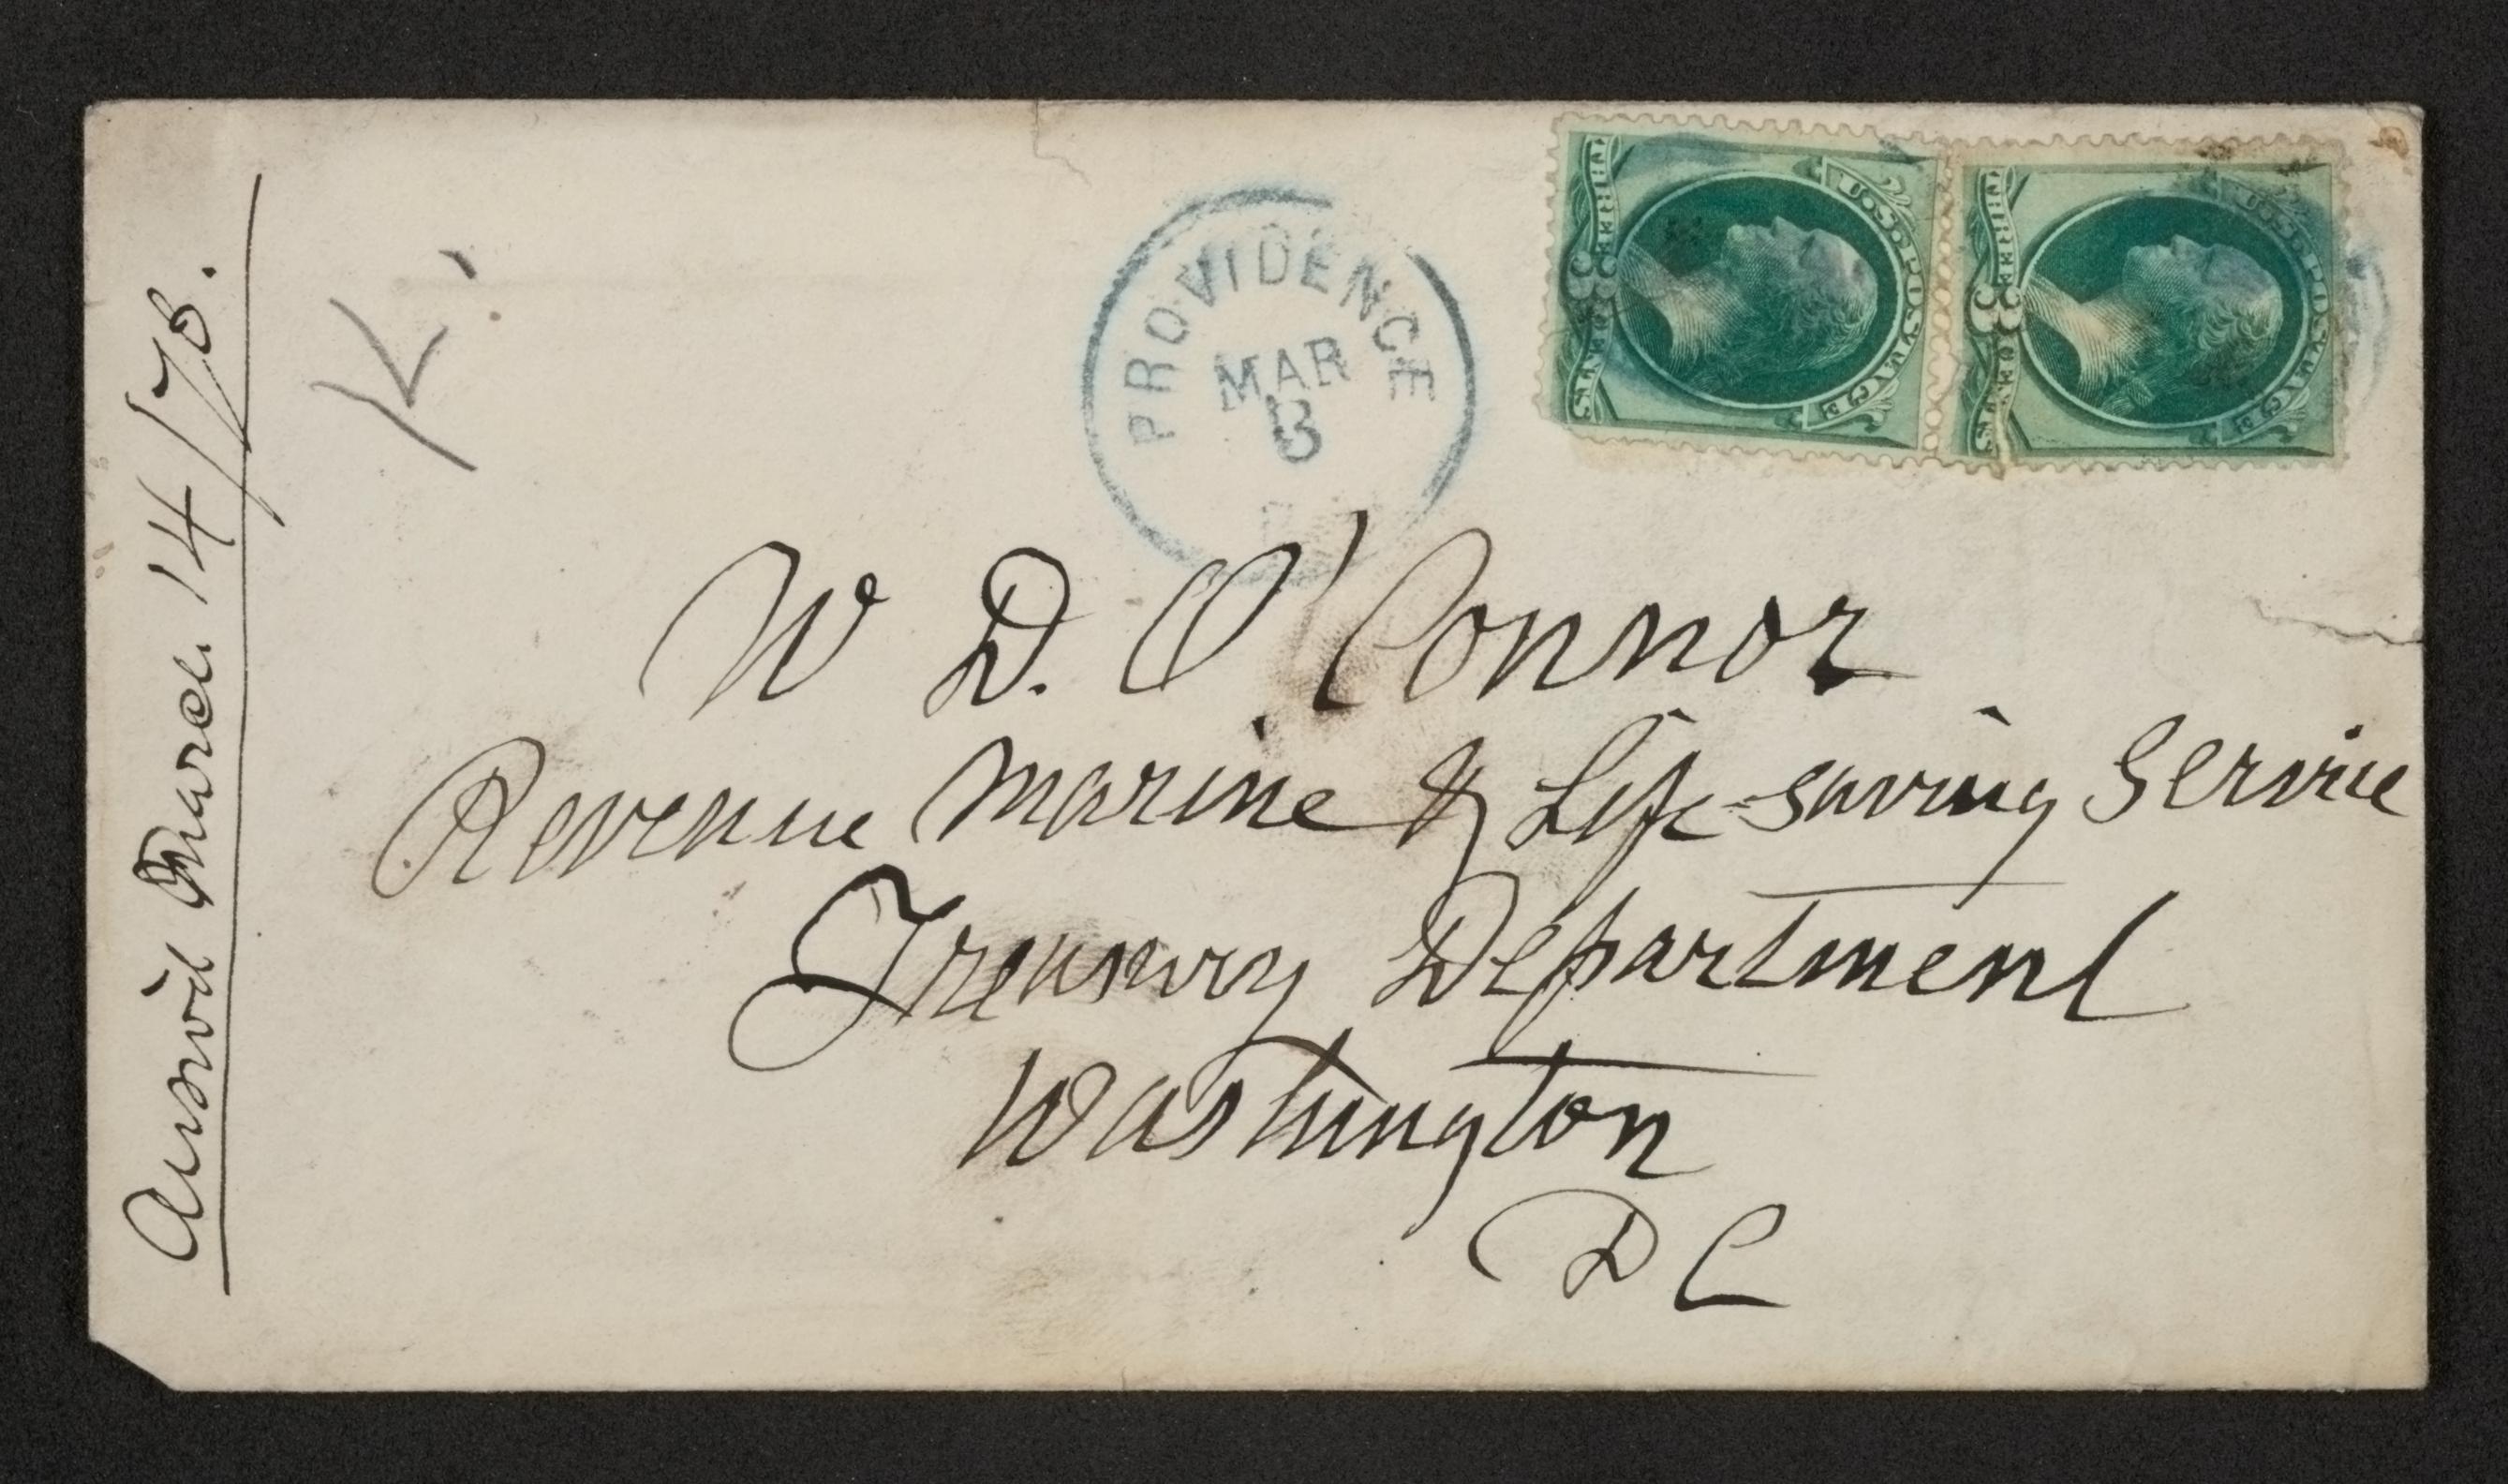 Answ'd March 14/76.
K.
PROVIDENCE
MAR
3
U.S. POSTAGE
THREE 3 CENTS
U.S. POSTAGE
THREE 3 CENTS
W D. O'Connor
Revenue marine & Life-saving Service
Treasury Department
Washington
D C